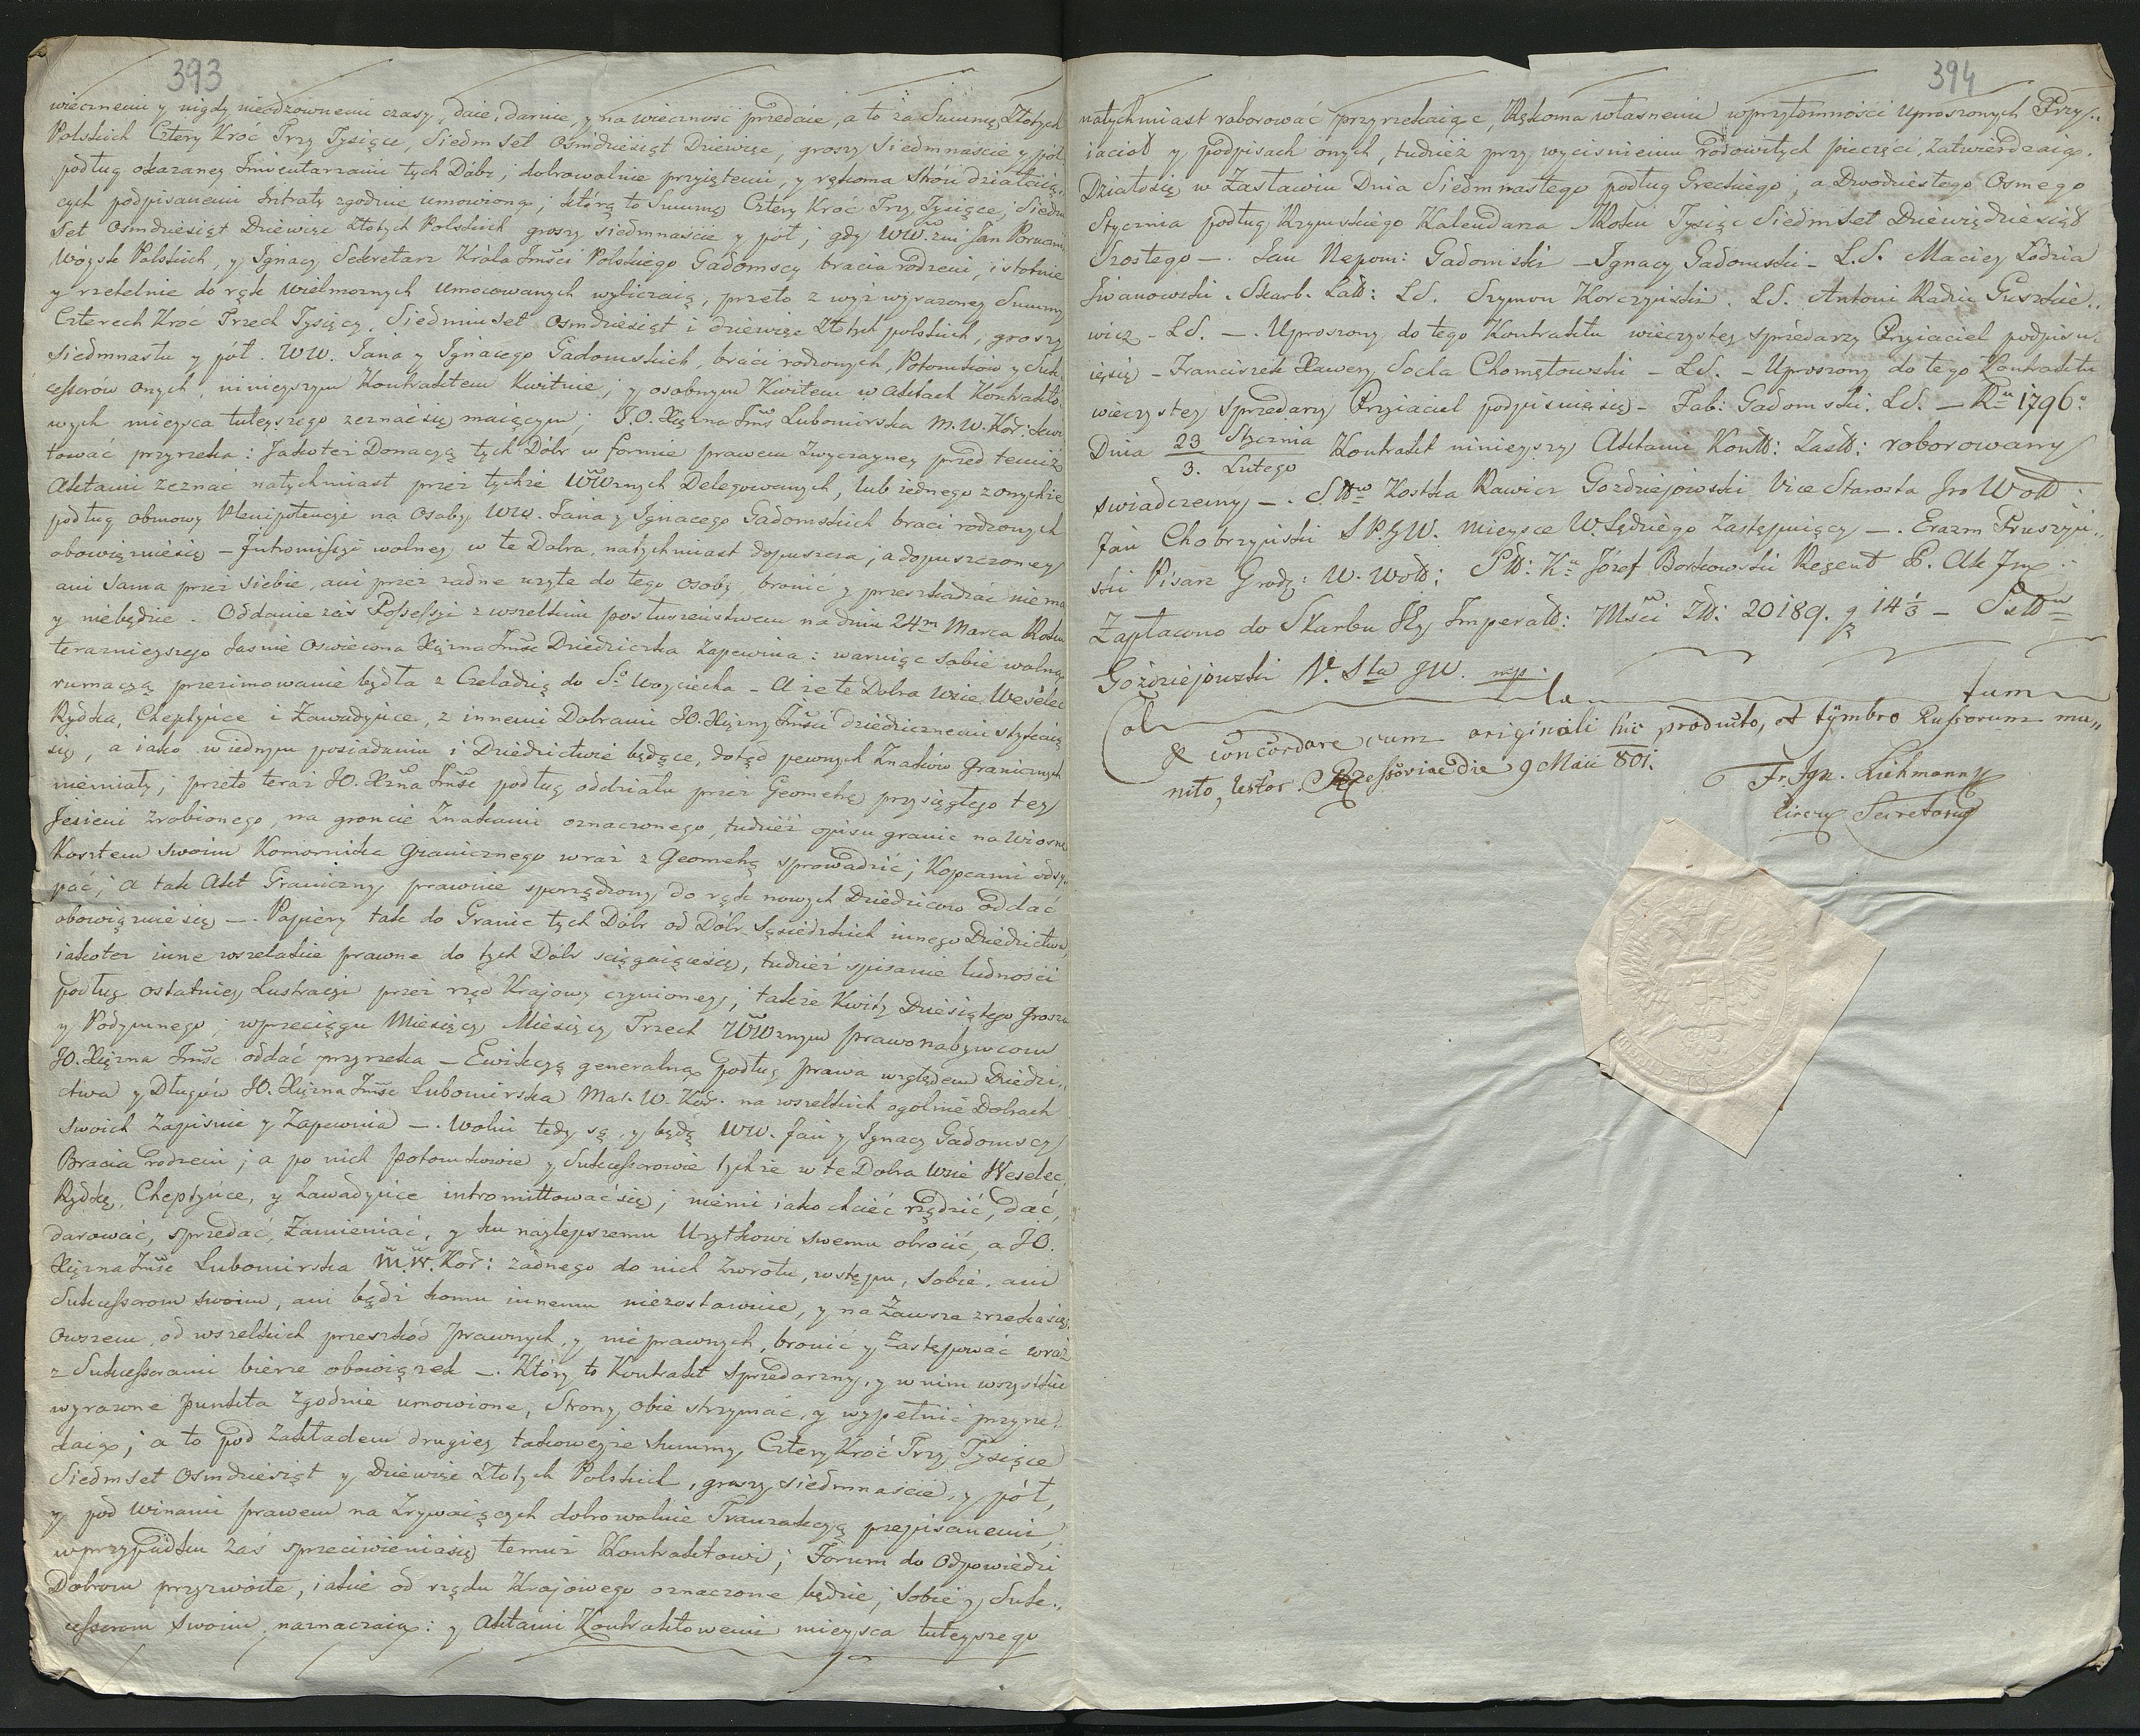 393
wiecznemi y nigdy nieodzownemi czasy, daie, daruie, y na wieczność przedaie, a to za Summę Złotych
Polskich Cztery Kroć Trzy Tysiące, Siedm Set Osmdziesiąt Dziewięć, groszy Siedmnaście y pół
podług okazaney Inwentarzami tych Dóbr, dobrowolnie przyiętemi, y rękoma Stron działaią„
cych podpisanemi Intraty zgodnie umowioną; którą to Summę Cztery Kroć Trzy Tysiące, Siedm
Set Osmdziesiąt Dziewięć Złotych Polskich groszy siedmnaście y pół; gdy WW. Jan Porucznik
Woysk Polskich, y Ignacy Sekretarz Króla Jmści Polskiego Gadomscy bracia rodzeni, istotnie
y rzetelnie do rąk Wielmożnych Umocowanych wyliczaią, przeto z wyż wyrażoney Summy
Czterech Kroć Trzech Tysięcy, Siedmiuset Osmdziesiąt i dziewięć Złotych polskich, groszy
Siedmnastu y pół. WW. Jana y Ignacego Gadomskich, braci rodzonych, Potomków y Suk„
cessorów onych, ninieyszym Kontraktem Kwituie; y osobnym Kwitem w Aktach Kontrakto„
wych mieysca tuteyszego zeznać się maiącym; J.O. Xiężna Jmść Lubomirska M. W. Kor: kwi„
tować przyrzeka: Jakoteż Donacyą tych Dóbr w formie prawem Zwyczayney przed temiż
Aktami zeznać natychmiast przez tychże WWznych Delegowanych, lub iednego z onychże
podług obmowy Plenipotencyi na Osoby WW. Jana y Ignacego Gadomskich braci rodzonych
obowiązuie się — Intromissyi wolney w te Dobra, natychmiast dopuszcza; a dopuszczoney
ani Sama przez siebie, ani przez żadne użyte do tego Osoby, bronić y przeszkadzać nie ma
y niebędzie. Oddanie zaś Possessyi z wszelkim posłuszeństwem na dniu 24m Marca Roku
teraznieyszego Jaśnie Oświecona Xiężna Jmść Dziedziczka Zapewnia: waruiąc sobie wolną
przezimowanie bydła z Czeladzią do So Woyciecha — A że te Dobra Wsie Weselec
Rydka, Cheptyńce i Zawadyńce, z innemi Dobrami JO. Xiężny Jmści dziedzicznemi stykaią
się, a iako w iednym posiadaniu i Dziedzictwie będące, dotąd pewnych Znaków granicznych
niemiały; przeto teraz JO. Xżna Jmść podług oddziału przez Geometrę przysięgłego tey
Jesieni zrobionego, na groncie Znakami oznaczonego, tudzież opisu granic na Wiosnę
Kosztem swoim Komornika Granicznego wraz z Geometrą sprowadzić; Kopcami odsy„
pać; a tak Akt Graniczny prawnie sporządzony do rąk nowych Dziedziców oddać
obowiązuie się —. Papiery tak do Granic tych Dóbr od Dóbr Sąsiedzkich innego Dziedzictwa,
iakoteż inne wszelakie prawne do tych Dóbr sciągaiącesię, tudzież spisanie ludności
podług ostatniey Lustracyi przez rząd Krajowy czynioney; także Kwity Dziesiątego grosza
y Podymnego; wprzeciągu Miesięcy Miesięcy Trzech WWznym prawonabywcom
JO. Xiężna Jmść oddać przyrzeka — Ewikcyą generalną podług prawa względem Dziedzi„
ctwa y Długów JO. Xiężna Jmść Lubomirska Mar. W. Kor. na wszelkich ogólnie Dobrach
swoich Zapisuie y Zapewnia —. Wolni tedy są, y będą WW. Jan y Ignacy Gadomscy
Bracia rodzeni; a po nich potomkowie y Sukcessorowie tychże w te Dobra Wsie Weselec,
Rydkę, Cheptyńce, y Zawadyńce intromittować się; niemi iako chcieć rządzić, dać,
darować, sprzedać, Zamieniać, y ku naylepszemu Użytkowi swemu obrocić, a JO.
Xiężna Jmść Lubomirska M. W. Kor: żadnego do nich Zwrotu, wstępu, sobie, ani
Sukcessorom swoim, ani bądź komu innemu niezostawuie, y na Zawsze zrzeka się,
Owszem, od wszelkich przeszkód prawnych, y nieprawnych, bronić y Zastępować wraz
z Sukcessorami bierze obowiązek —. Który to Kontrakt Sprzedarzny, y w nim wszystkie
wyrażone punkta zgodnie umowione, Strony obie strzymać, y wypełnić przyrze„
kaią; a to pod Zakładem drugiey takoweyże Summy Cztery Kroć Trzy Tysiące
Siedmset Osmdziesiąt y Dziewięć Złotych Polskich, groszy siedmnaście, y pół,
y pod Winami prawem na Zrywaiących dobrowolnie Tranzakcyą przepisanemi,
wprzypadku zaś sprzeciwieniasię temuż Kontraktowi; Forum do Odpowiedzi
Dobrom przyzwoite, iakie od rządu Krajowego oznaczone będzie, sobie y Suk„
cessorom swoim, naznaczaią: y Aktami Kontraktowemi mieysca tuteyszego
394
natychmiast roborować przyrzekaiąc, Rękoma własnemi wprzytomności uproszonych Przy„
iaciół y podpisach onych, tudzież przy wyciśnieniu rodowitych pieczęci, Zatwierdzaią.
Działosię w Zasławiu Dnia Siedmnastego podług Greckiego, a Dwódziestego Osmego
Stycznia podług Rzymskiego Kalendarza Roku Tysiąc Siedmset Dziewiędziesiąt
Szostego —. Jan Nepom: Gadomski — Ignacy Gadomski — L.S. Maciey Łodzia
Iwanowski. Skarb. L.S. Szymon Korczyński. LS. Antoni Radiu Guszkie„
wicz — LS. —. Uproszony do tego Kontraktu wieczystey sprzedarzy Przyiaciel podpisu„
ięsię — Franciszek Xawery Socha Chomętowski — LS. — Uproszony do tego Kontraktu
wieczystey sprzedarzy Przyiaciel podpisuięsię — Fab: Gadomski. LS. — Ru 1796.
Dnia 23 Stycznia / 3. Lutego Kontrakt ninieyszy Aktami Kontt: Zastt: roborowany
świadczemy —. Kostka Rawicz Gozdziejowski Vice Starosta Gro Wołł:
Jan Chobrzyński S.P.G.W. mieysce W. Sędziego Zastępuiący —. Erazm Pruszyń„
ski Pisarz Grodz: W. Wołł: Józef Borkowski Regent
Zapłacono do Skarbu Jey Imperatt: Mści Złł: 20189. g 14⅓ —
Gozdziejowski V. Sta GW. mp.
Col la tum
& concordare cum originali hic producto, et tymbro Russorum mu„
nito, testor. Rzessoviae die 9 Maii 801.
Fr. Ign. Liehmann
Circu Secretarius